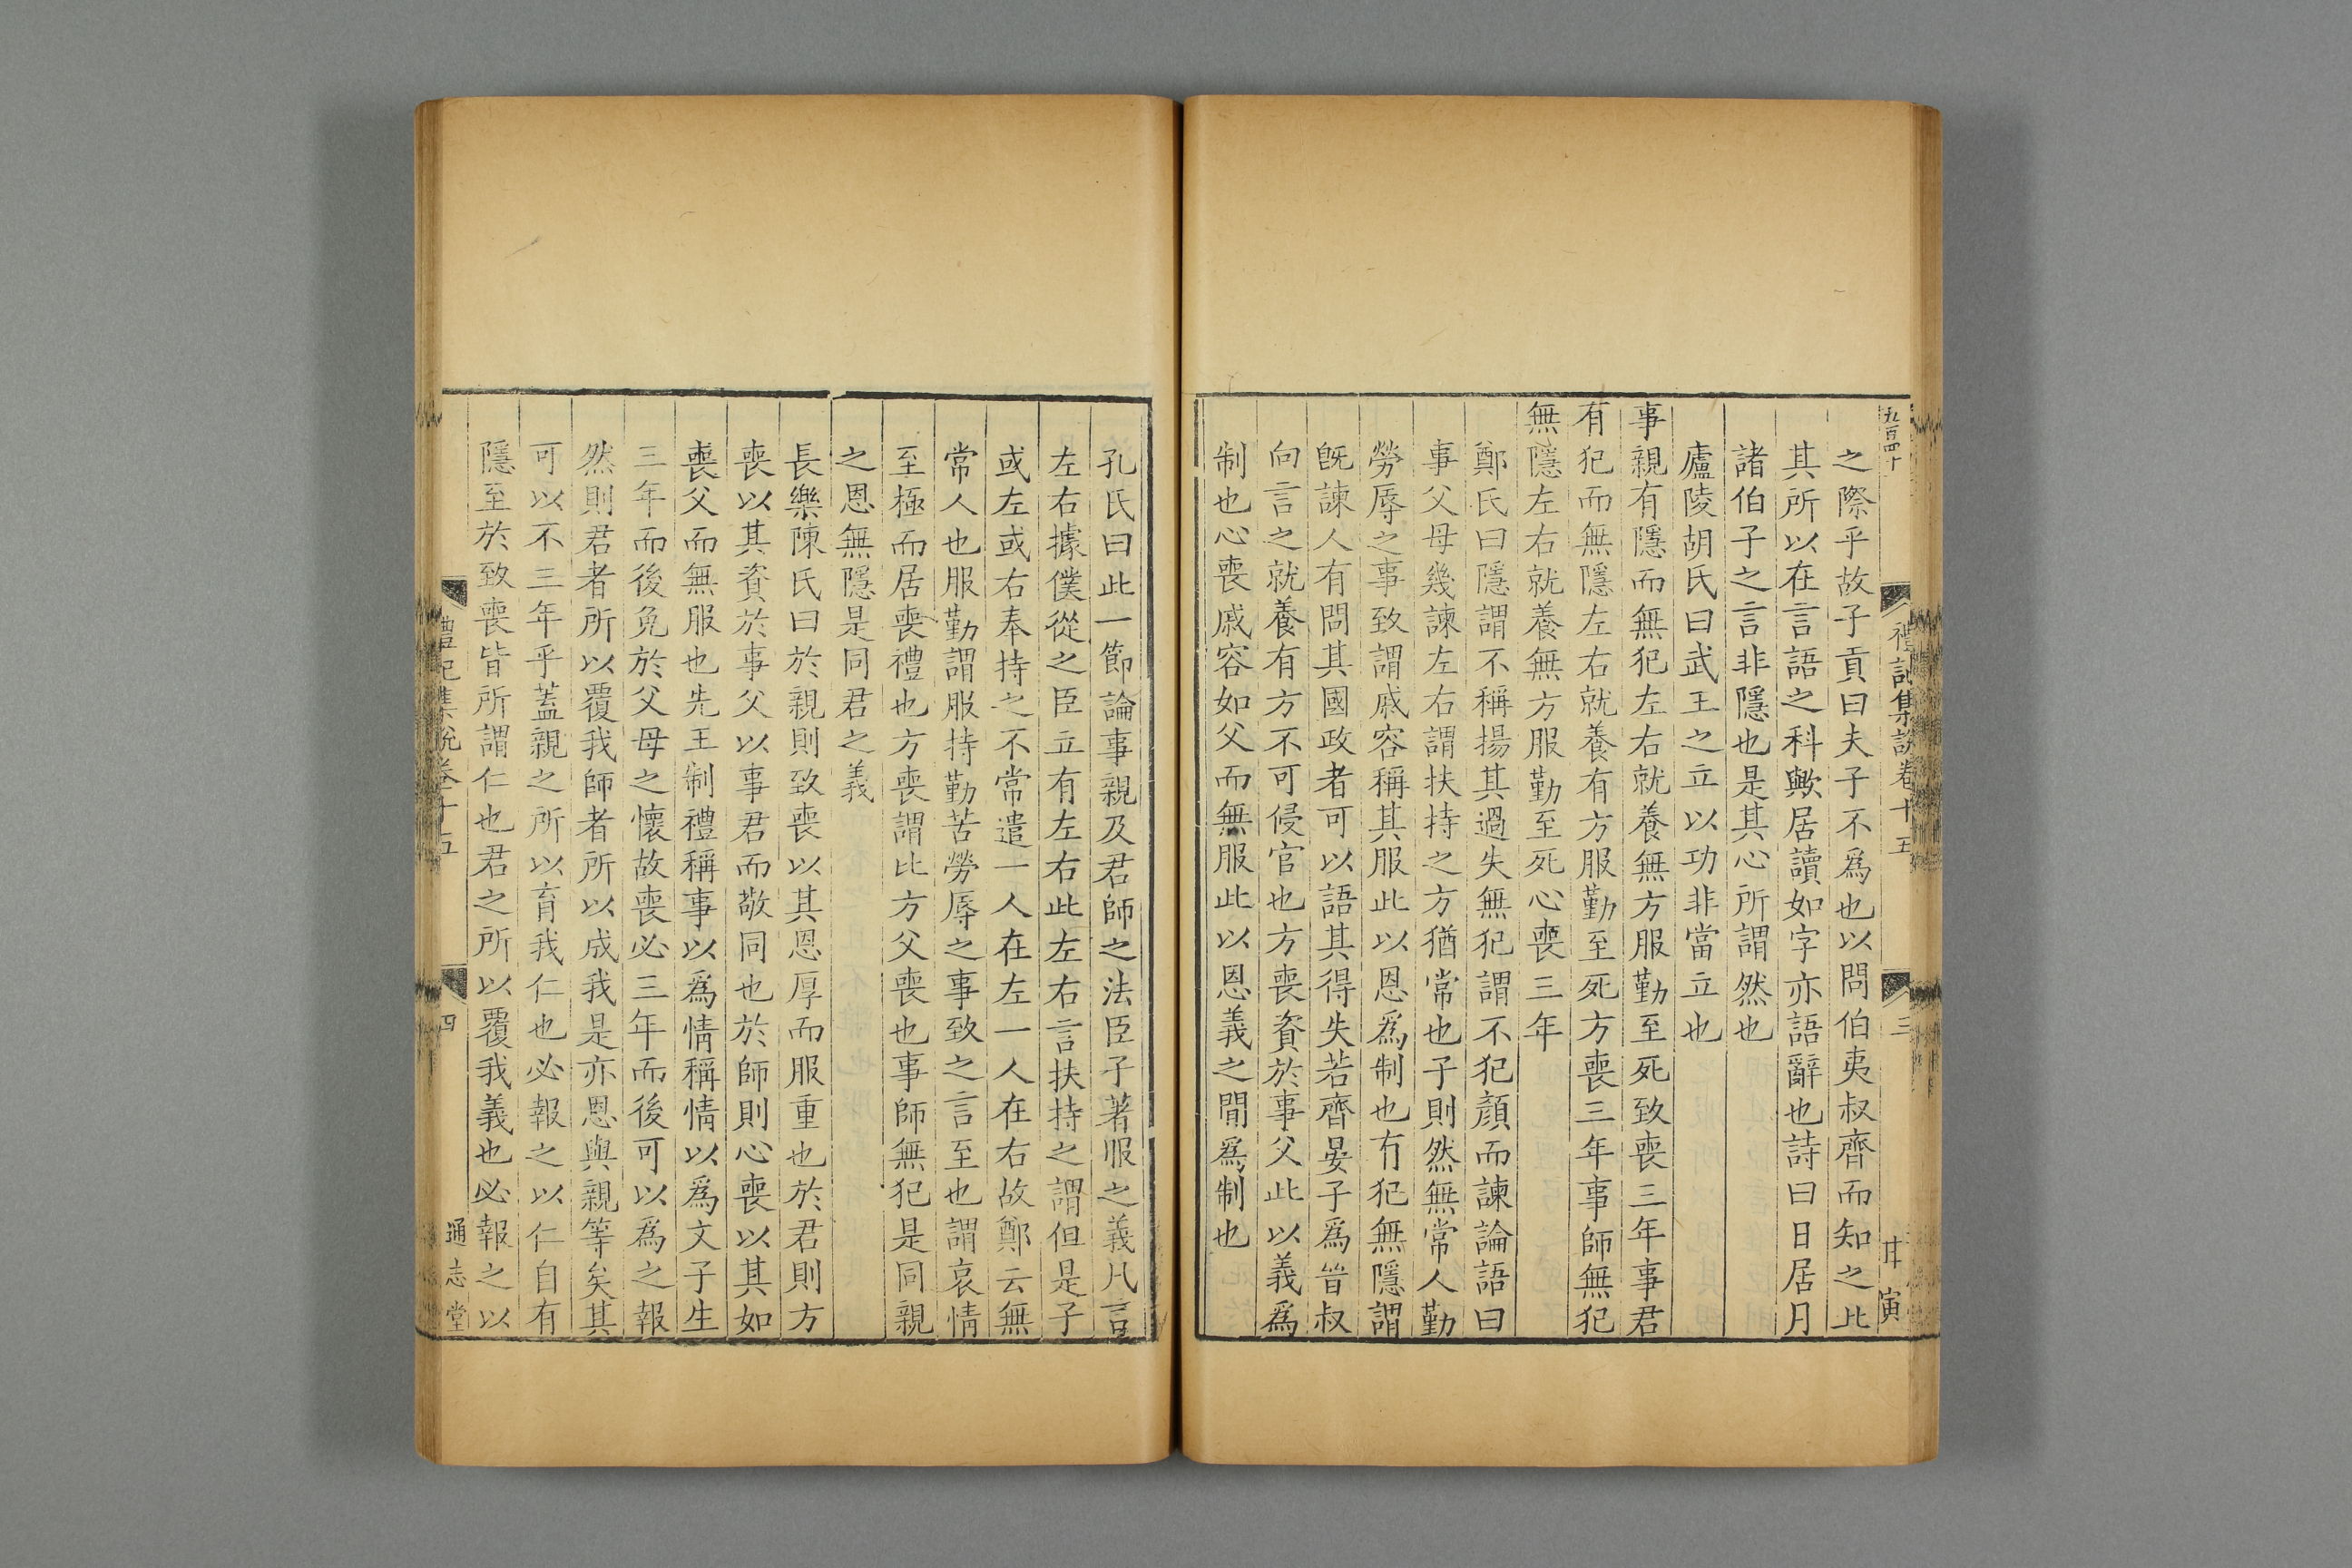 五百四十
禮記集說卷十五
三
甘寅
之際乎故子貢曰夫子不爲也以問伯夷叔齊而知之此
其所以在言語之科歟居讀如字亦語辭也詩曰日居月
諸伯子之言非隱也是其心所謂然也
廬陵胡氏曰武王之立以功非當立也
事親有隱而無犯左右就養無方服勤至死致喪三年事君
有犯而無隱左右就養有方服勤至死方喪三年事師無犯
無隱左右就養無方服勤至死心喪三年
鄭氏曰隱謂不稱揚其過失無犯謂不犯顏而諫論語曰
事父母幾諫左右謂扶持之方猶常也子則然無常人勤
勞辱之事致謂戚容稱其服此以恩爲制也有犯無隱謂
旣諫人有問其國政者可以語其得失若齊晏子爲晉叔
向言之就養有方不可侵官也方喪資於事父此以義爲
制也心喪戚容如父而無服此以恩義之間爲制也
孔氏曰此一節論事親及君師之法臣子著服之義凡言
左右據僕從之臣立有左右此左右言扶持之謂但是子
或左或右奉持之不常遣一人在左一人在右故鄭云無
常人也服勤謂服持勤苦勞辱之事致之言至也謂哀情
至極而居喪禮也方喪謂比方父喪也事師無犯是同親
之恩無隱是同君之義
長樂陳氏曰於親則致喪以其恩厚而服重也於君則方
喪以其資於事父以事君而敬同也於師則心喪以其如
喪父而無服也先王制禮稱事以爲情稱情以爲文子生
三年而後免於父母之懷故喪必三年而後可以爲之報
然則君者所以覆我師者所以成我是亦恩與親等矣其
可以不三年乎蓋親之所以育我仁也必報之以仁自有
隱至於致喪皆所謂仁也君之所以覆我義也必報之以
禮記集說卷十五
四
通志堂